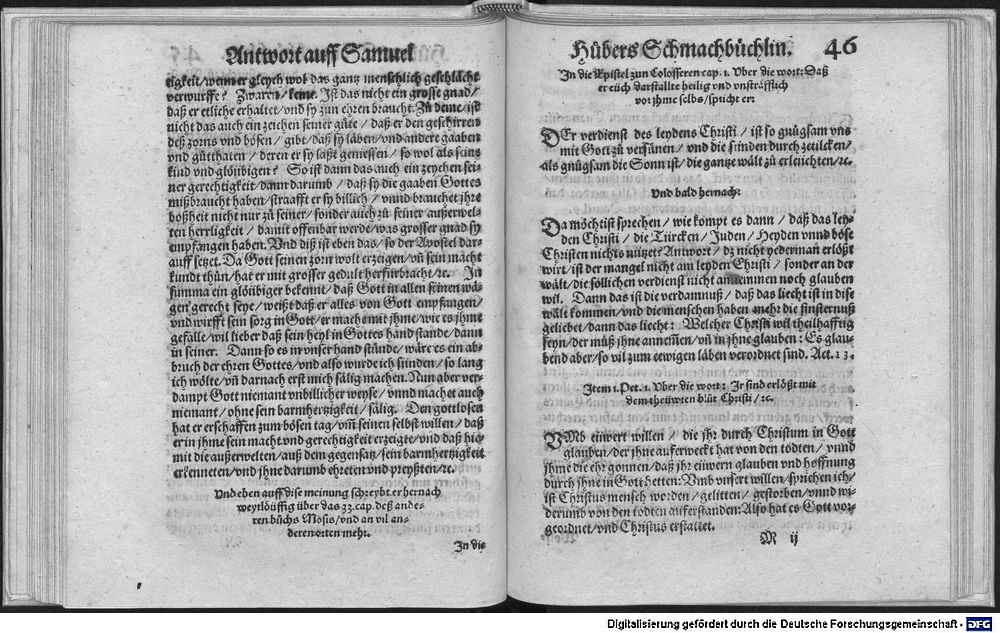 Antwort auff Samuel
eigkeit/ wenn er gleych wol das gantz menschlich geschlächt
verwurffe? Zwaren/ keine. Ist das nicht ein grosse gnad/
daß er etliche erhaltet/ vnd sy zun ehren braucht. Zů deme/ ist
nicht das auch ein zeichen seiner güte/ daß er den geschirren
deß zorns vnd bösen/ gibt/ daß sy läben/ vnnd andere gaaben
vnd gütthaten/ deren er sy laßt geniessen/ so wol als seine
kind vnd glöubigen? So ist dann das auch ein zeychen sei-
ner gerechtigkeit/ dann darumb/ daß sy die gaaben Gottes
mißbraucht haben/ straafft er sy billich/ vnnd brauchet jhre
boßheit nicht nur zů seiner/ sonder auch zů seiner außerwel-
ten herrligkeit/ damit offenbar werde/ was grosser gnad sy
empfangen haben. Vnd diß ist eben das/ so der Apostel dar-
auff setzet. Da Gott seinen zorn wolt erzeigen/ vñ sein macht
kundt thůn/ hat er mit grosser gedult herfürbracht/ ⁊c. In
summa ein glöubiger bekennt/ daß Gott in allen seinen wä-
gen gerecht seye/ weißt daß er alles von Gott empfangen/
vnd wirfft sein sorg in Gott/ er mache mit jhme/ wie es jhme
gefalle/ wil lieber daß sein heyl in Gottes hand stande/ dann
in seiner. Dann so es in vnser hand stünde/ wäre es ein ab-
bruch der ehren Gottes/ vnd also wurde ich sünden/ so lang
ich wölte/ vñ darnach erst mich sälig machen. Nun aber ver-
dampt Gott niemant vnbillicher weyse/ vnnd machet auch
niemant/ ohne sein barmhertzigkeit/ sälig. Den gottlosen
hat er erschaffen zum bösen tag/ vm̃ seinen selbst willen/ daß
er in jhme sein macht vnd gerechtigkeit erzeigte/ vnd daß hie-
mit die außerwelten/ auß dem gegensatz/ sein barmhertzigkeit
erkenneten/ vnd jhne darumb ehreten vnd preyßten/ ⁊c.
Vnd eben auff dise meinung schreybt er hernach
weytlöuffig über das 33. cap. deß ande-
ren bůchs Mosis/ vnd an vil an-
deren orten mehr.
In die
Hůbers Schmachbüchlin. 46
In die Epistel zun Colosseren cap. 1. Vber die wort: Daß
er euch darstallte heilig vnd vnsträfflich
vor jhme selbs/ spricht er:
DEr verdienst des leydens Christi/ ist so gnůgsam vns
mit Gott zů versünen/ vnd die sünden durch zeitlcken/
als gnůgsam die Sonn ist/ die gantze wält zů erleüchten/ ⁊c.
Vnd bald hernach:
Da möchtist sprechen/ wie kompt es dann/ daß das ley-
den Christi/ die Türcken/ Juden/ Heyden vnnd böse
Christen nichts nützet? Antwort/ dz nicht yederman erlößt
wirt/ ist der mangel nicht am leyden Christi/ sonder an der
wält/ die söllichen verdienst nicht annemmen noch glauben
wil. Dann das ist die verdamnuß/ daß das liecht ist in dise
wält kommen/ vnd die menschen haben mehr die finsternuß
geliebet/ dann das liecht: Welcher Christi wil theilhafftig
seyn/ der můß jhne annem̃en/ vñ in jhne glauben: Es glau-
bend aber/ so vil zum eewigen läben verordnet sind. Act. 13.
Item 1. Pet. 1. Vber die wort: Ir sind erlößt mit
dem theüwren blůt Christi/ ⁊c.
VMb eüwert willen/ die jhr durch Christum in Gott
glauben/ der jhne auferweckt hat von den todten/ vnnd
jhme die ehr gonnen/ daß jhr eüweren glauben vnd hoffnung
durch jhne in Gott hetten: Vmb vnsert willen/ sprichen ich/
ist Christus mensch worden/ gelitten/ gestorben/ vnnd wi-
derumb von den todten auferstanden: Also hat es Gott vor-
geordnet/ vnd Christus erstattet.
M ij
Digitalisierung gefördert durch die Deutsche Forschungsgemeinschaft - DFG